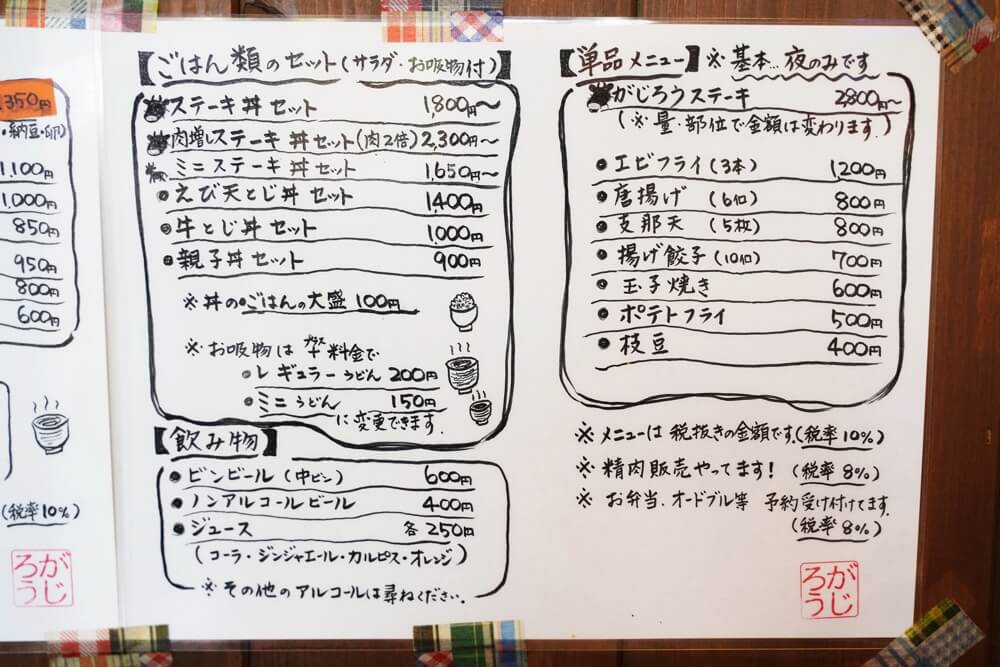 350円
・納豆・卵)
1,100円
1,000円
850円
950円
800円
600円
(税率10%)
がじろう
【ごはん類のセット(サラダ・お吸物付)】
ステーキ丼セット 1,800円～
肉増しステーキ丼セット(肉2倍) 2,300円～
ミニステーキ丼セット 1,650円～
えび天とじ丼セット 1,400円
牛とじ丼セット 1,000円
親子丼セット 900円
※丼のごはんの大盛 100円
※お吸物は+プラス料金で
レギュラーうどん 200円
ミニうどん 150円
に変更できます。
【飲み物】
ビンビール(中ビン) 600円
ノンアルコールビール 400円
ジュース 各250円
(コーラ・ジンジャエール・カルピス・オレンジ)
※その他のアルコールは尋ねください。
【単品メニュー】※基本…夜のみです
がじろうステーキ 2,800円～
(※量・部位で金額は変わります。)
エビフライ(3本) 1,200円
唐揚げ(6個) 800円
支那天(5枚) 800円
揚げ餃子(10個) 700円
玉子焼き 600円
ポテトフライ 500円
枝豆 400円
※メニューは税抜きの金額です。(税率10%)
※精肉販売やってます!(税率8%)
※お弁当、オードブル等 予約受け付けてます。
(税率8%)
がじろう